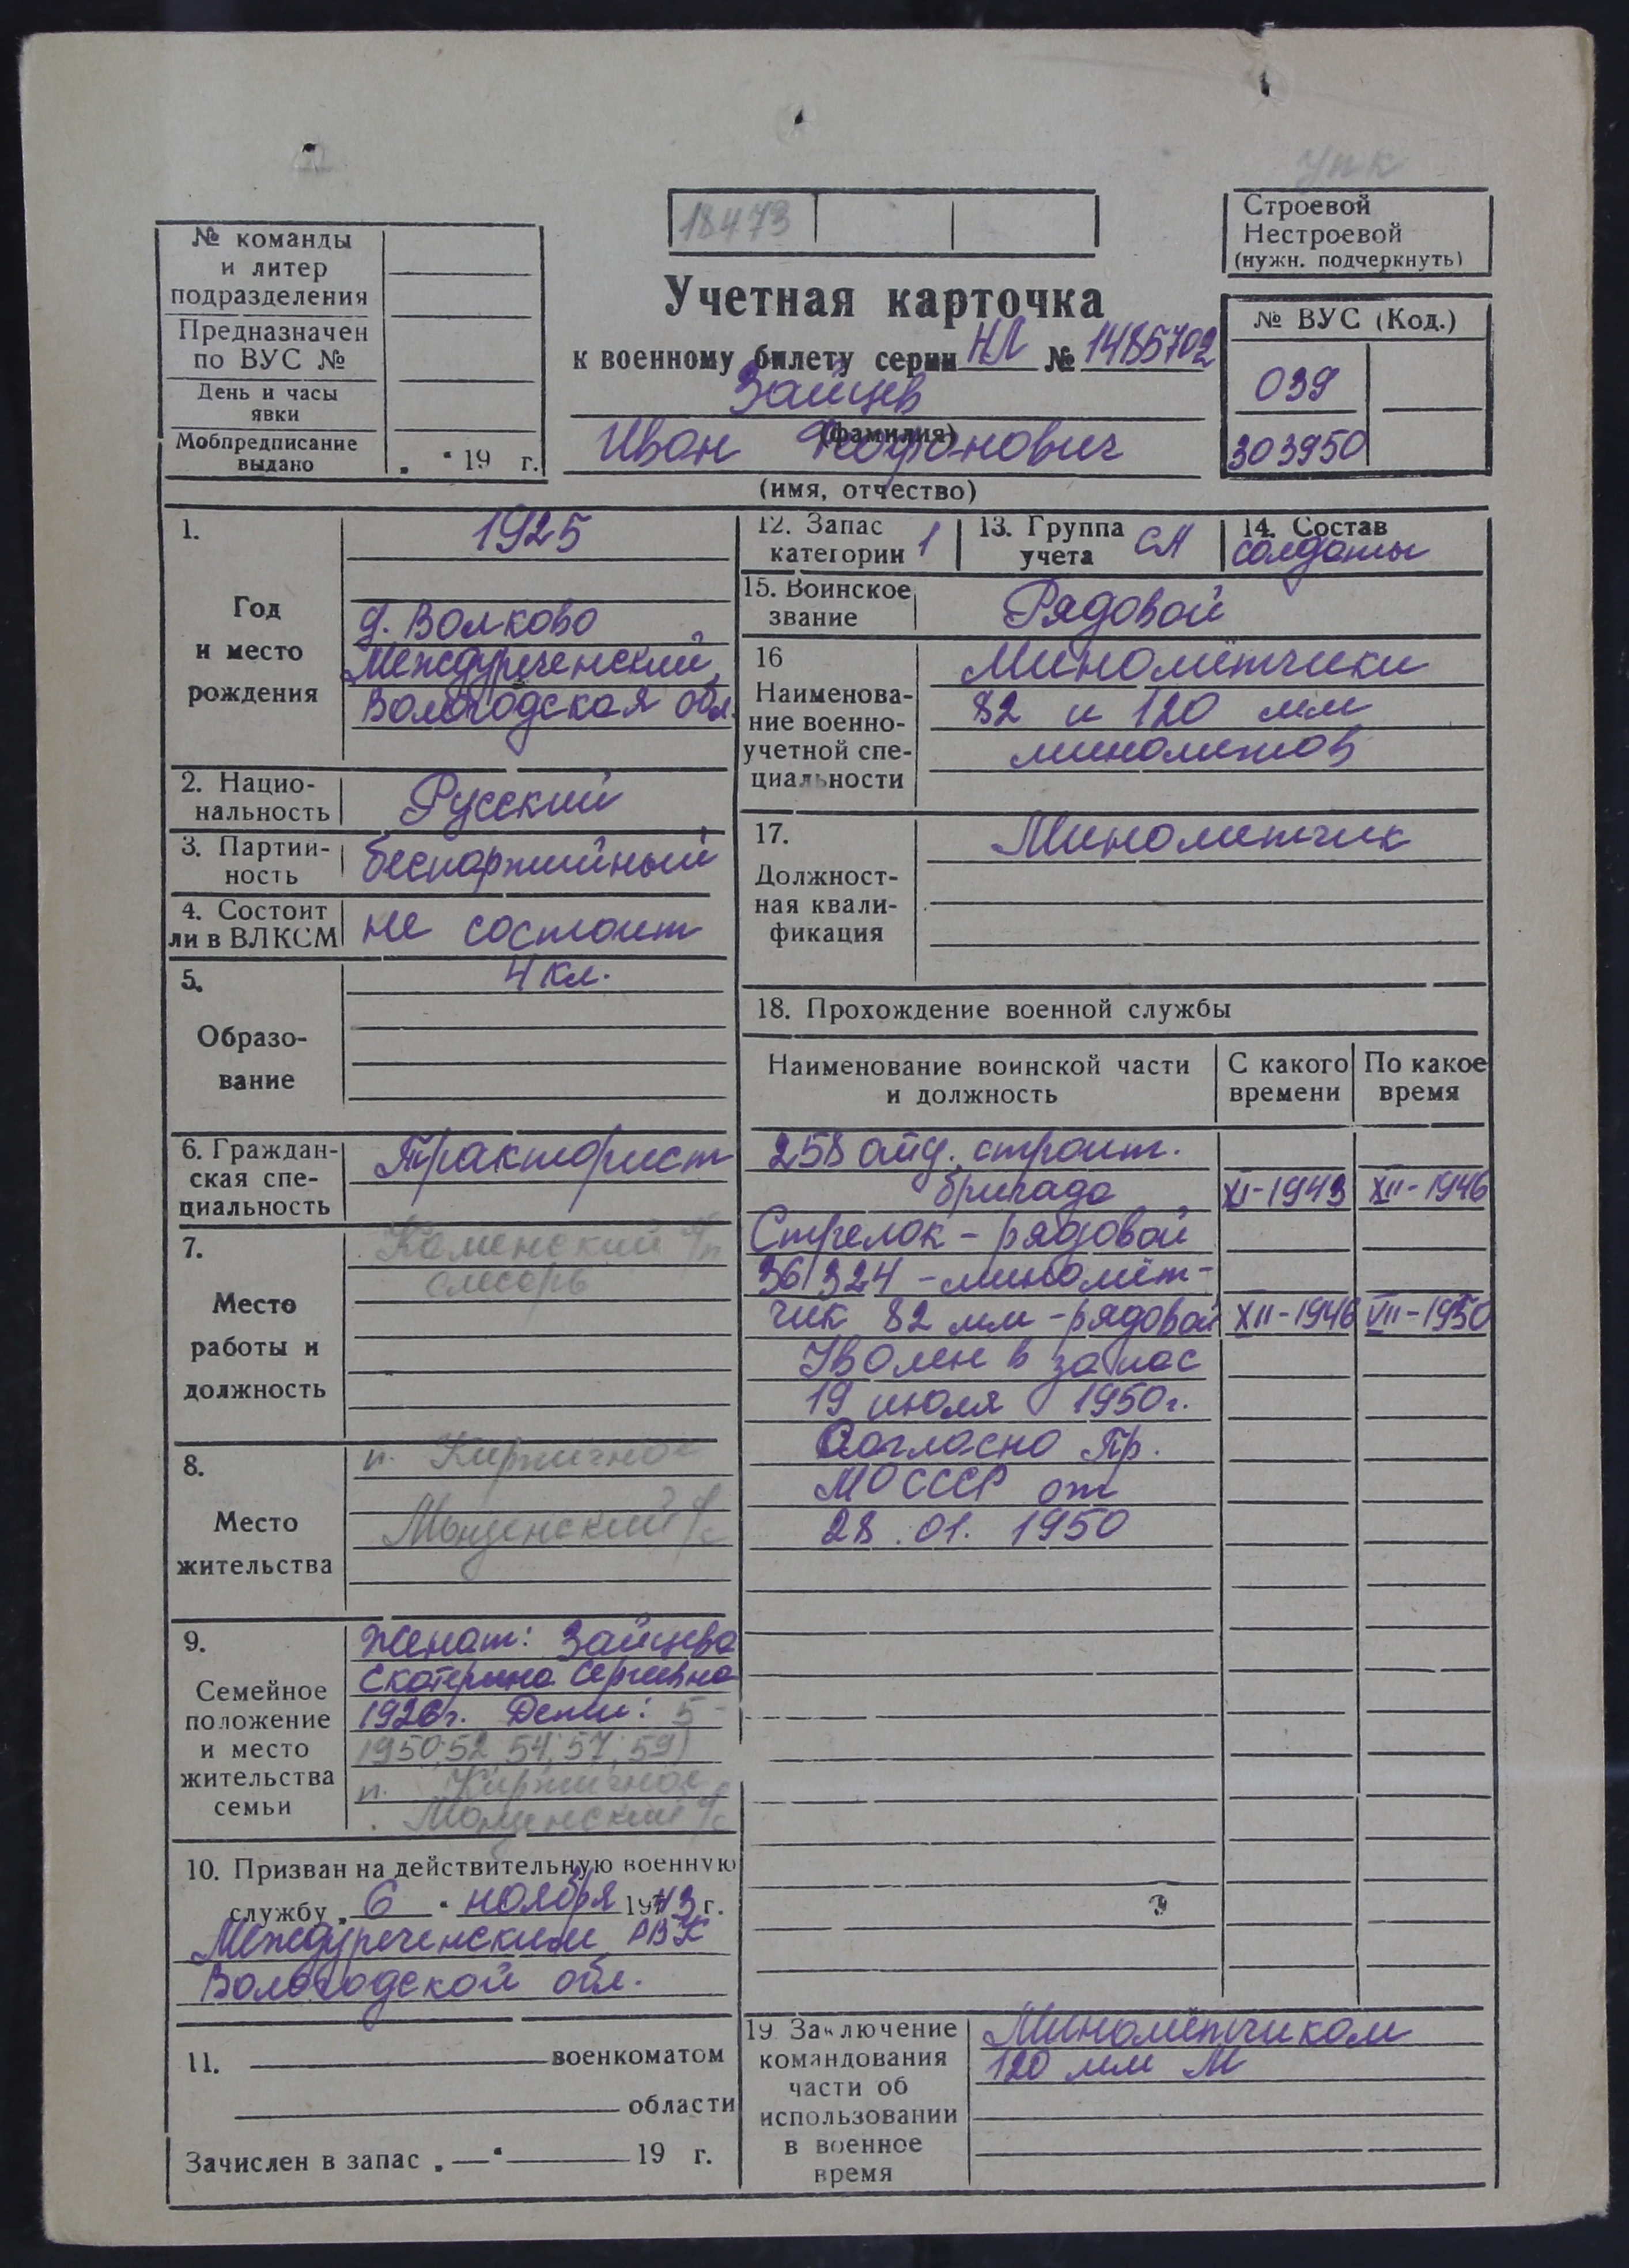 упк
18473
Строевой
Нестроевой
(нужн. подчеркнуть)
№ команды
и литер
подразделения
Предназначен
по ВУС №
День и часы
явки
Мобпредписание
выдано „ “ 19 г.
Учетная карточка
к военному билету серии НЛ № 1485702
Зайцев
(фамилия)
Иван
(имя, отчество)
№ ВУС (Код.)
039
303950
1.
Год
и место
рождения
1925
д. Волково
Междуреченский,
Вологодская обл.
2. Нацио-
нальность
Русский
3. Партий-
ность
беспартийный
4. Состоит
ли в ВЛКСМ
не состоит
5.
Образо-
вание
4 кл.
6. Граждан-
ская спе-
циальность
Тракторист
7.
Место
работы и
должность
Каменский л/п
слесарь
8.
Место
жительства
п. Кирпичное
с/с
9.
Семейное
положение
и место
жительства
семьи
Женат: Зайцева
Екатерина Сергеевна
1926г. Дети: 5-
1950, 52, 54, 57, 59)
п. Кирпичное
с/с
10. Призван на действительную военную
службу „ 6 “ ноября 1943 г.
Междуреченским РВК
Вологодской обл.
11. военкоматом
области
Зачислен в запас „—“ 19 г.
12. Запас
категории 1
13. Группа
учета СА
14. Состав
солдаты
15. Воинское
звание
Рядовой
16
Наименова-
ние военно-
учетной спе-
циальности
Миномётчики
82 и 120 мм
миномётов
17.
Должност-
ная квали-
фикация
Минометчик
18. Прохождение военной службы
Наименование воинской части
и должность
С какого
времени
По какое
время
258 отд. строит.
бригада XI-1943 XII-1946
Стрелок - рядовой
36/324 - миномёт-
чик 82 мм - рядовой XII-1946 VII-1950
Уволен в запас
19 июля 1950г.
Согласно Пр.
МО СССР от
28.01.1950
19 Заключение
командования
части об
использовании
в военное
время
Миномётчиком
120 мм М